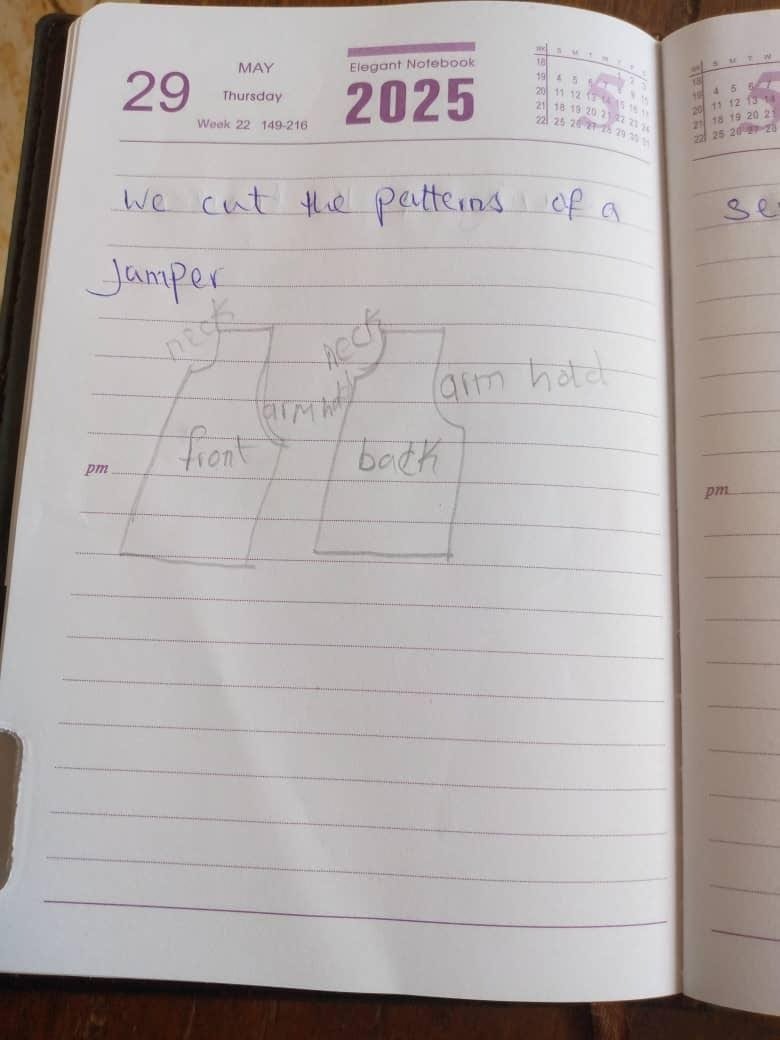 29
MAY
Thursday
Week 22 149-216
Elegant Notebook
2025
WK S M T W T F S
18 1 2 3
19 4 5 6 7 8 9 10
20 11 12 13 14 15 16 17
21 18 19 20 21 22 23 24
22 25 26 27 28 29 30 31
5
We cut the patterns of a
Jamper
neck
neck
arm hold
arm hol
front
back
pm
WK S M T W
18
19 4 5 6 7
20 11 12 13 14
21 18 19 20 21
22 25 26 27 28
5
se
pm